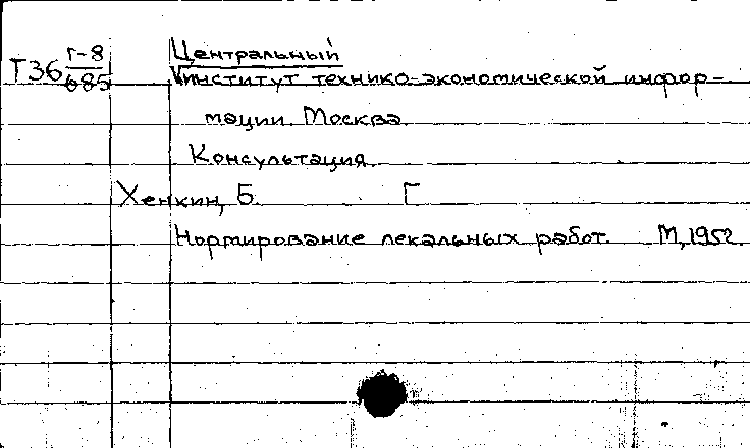 Т36 Г-8/685
Центральный
институт технико-экономической инфор-
мации. Москва.
Консультация.
Хенкин, Б. Г
Нормирование лекальных работ. М, 1952.